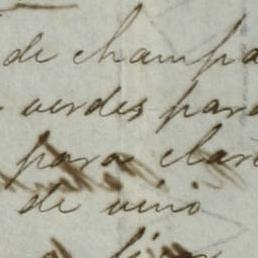 de champa
verdes para
para clar
de vino